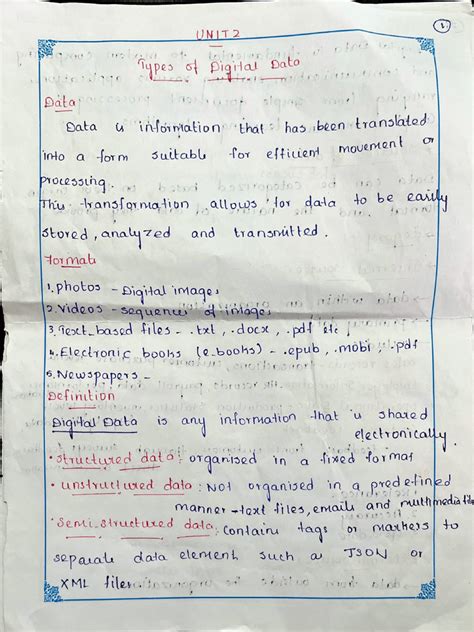 1.
UNIT 2
Types of Digital Data
Data
Data is information that has been translated
into a form suitable for efficient movement or
processing.
This transformation allows for data to be easily
stored, analyzed and transmitted.
Formats
1. photos - Digital images
2. videos - sequence of images
3. Text-based files - .txt, .docx, .pdf etc,
4. Electronic books (e.books) - .epub, .mobi, .pdf
5. Newspapers -
Definition
Digital Data is any information that is shared
electronically.
• structured data: organised in a fixed format
• unstructured data: Not organised in a predefined
manner - text files, emails and multimedia files
• Semi-structured data: contains tags or markers to
separate data element such as JSON or
XML files.